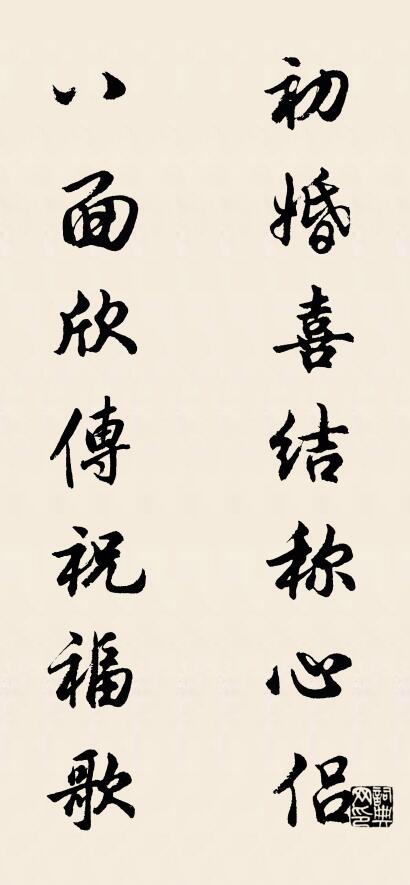 初婚喜结称心侣
八面欣傳祝福歌
詞典网印